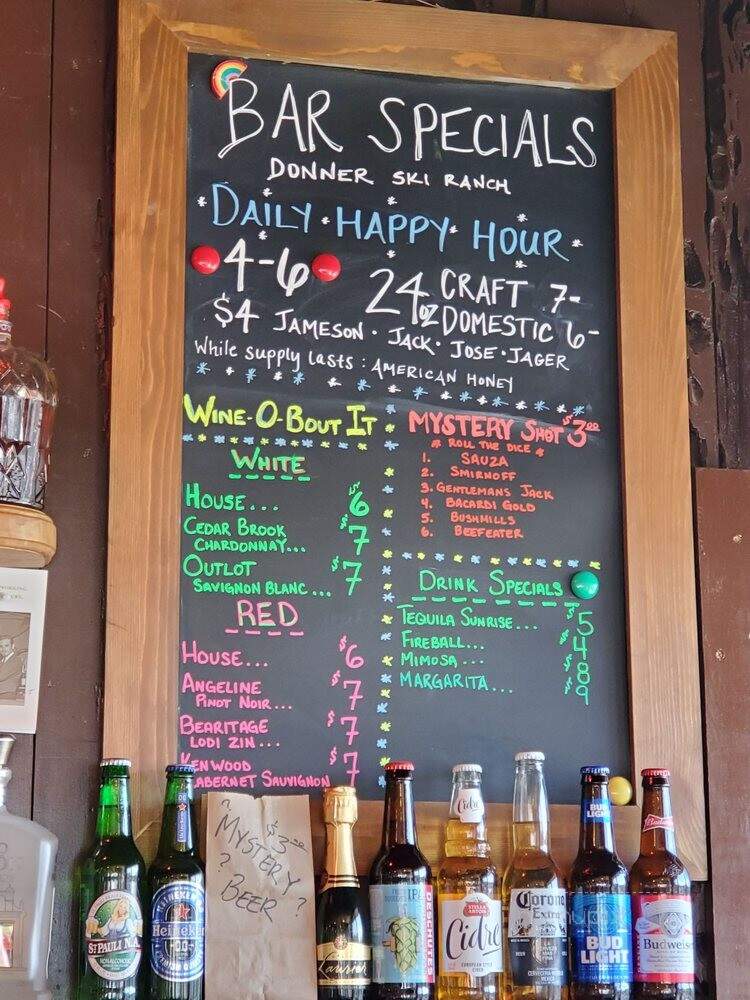 BAR SPECIALS
DONNER SKI RANCH
DAILY HAPPY HOUR
4-6
24oz CRAFT 7-
DOMESTIC 6-
$4 JAMESON · JACK · JOSE · JAGER
While supply lasts : AMERICAN HONEY
WINE-O-BOUT IT
WHITE
HOUSE... $6
CEDAR BROOK
CHARDONNAY... $7
OUTLOT
SAVIGNON BLANC... $7
RED
HOUSE... $6
ANGELINE
PINOT NOIR... $7
BEARITAGE
LODI ZIN... $7
KENWOOD
CABERNET SAUVIGNON $7
MYSTERY SHOT $3.00
* ROLL THE DICE *
1. SAUZA
2. SMIRNOFF
3. GENTLEMANS JACK
4. BACARDI GOLD
5. BUSHMILLS
6. BEEFEATER
DRINK SPECIALS
TEQUILA SUNRISE... $5
FIREBALL... $4
MIMOSA... $8
MARGARITA... $9
? $3.00
MYSTERY
? BEER ?
ST PAULI N.A.
NON ALCOHOLIC
HEINEKEN
Heineken
0.0
IPA
DESCHUTES
Cidre
STELLA ARTOIS
Cidre
EUROPEAN STYLE
CIDER
Corona
Extra
BUD
LIGHT
BUD
LIGHT
Budweiser